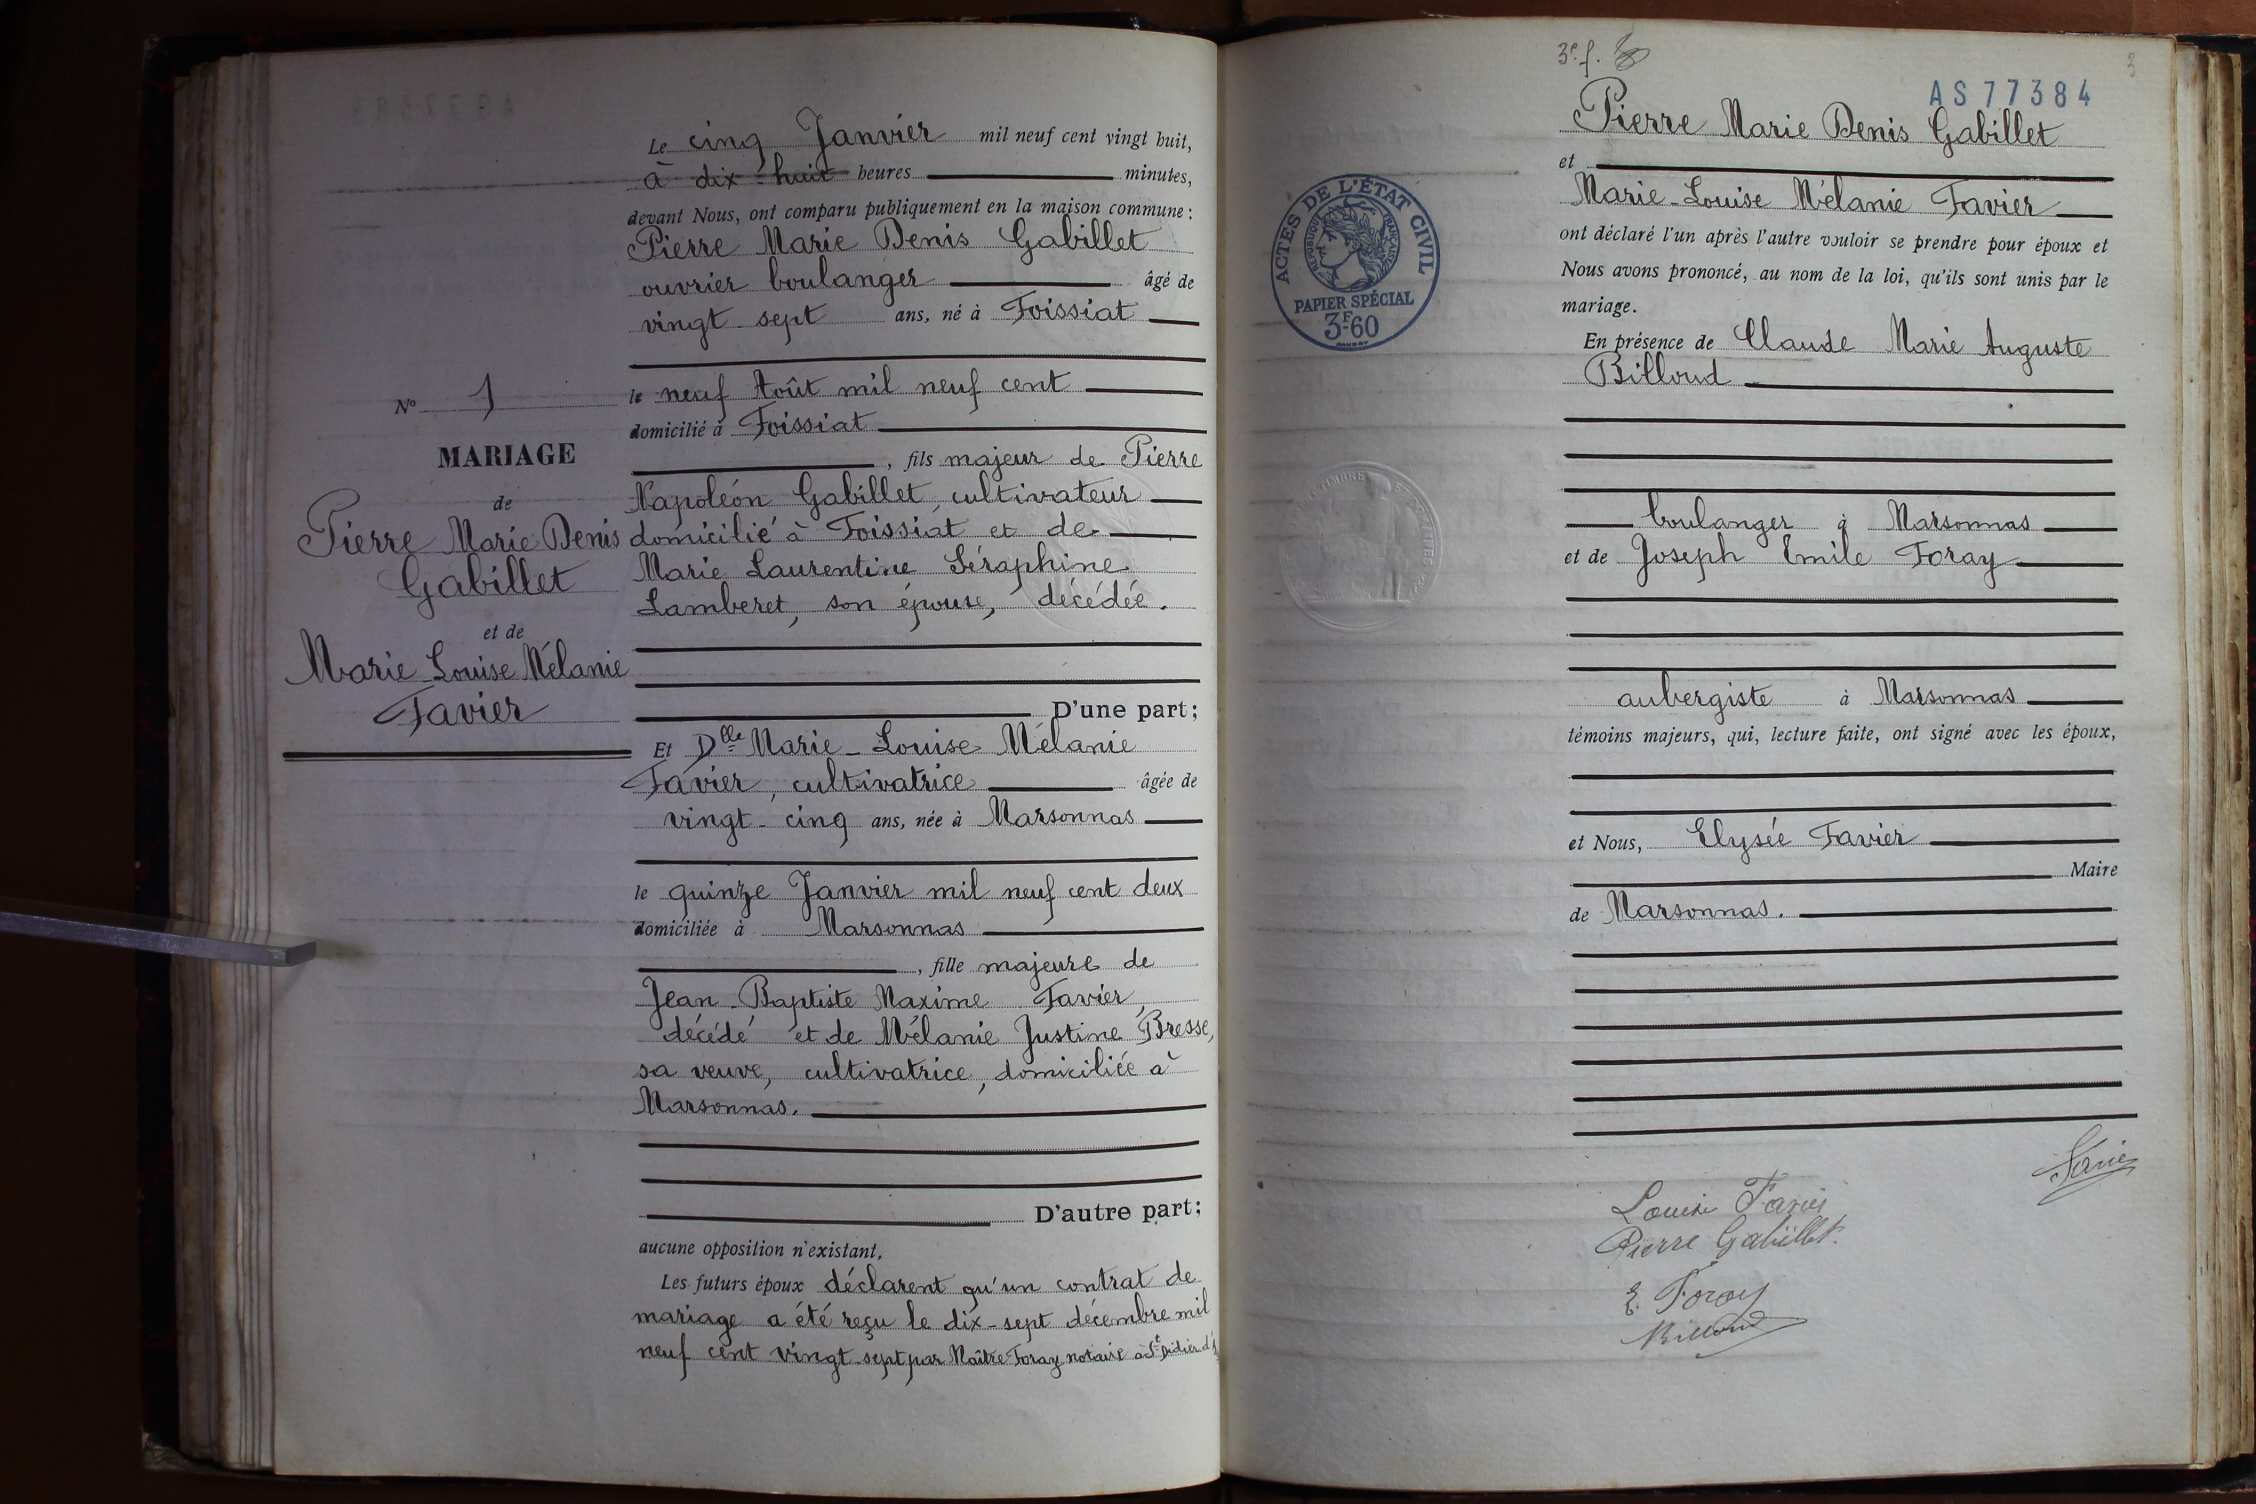 Le cinq Janvier mil neuf cent vingt huit,
à dix-huit heures minutes,
devant Nous, ont comparu publiquement en la maison commune :
Pierre Marie Denis Gabillet
ouvrier boulanger âgé de
vingt sept ans, né à Foissiat
le neuf Août mil neuf cent
domicilié à Foissiat
, fils majeur de Pierre
Napoléon Gabillet, cultivateur
domicilié à Foissiat et de
Marie Laurentine Séraphine
Lamberet, son épouse, décédée.
D'une part;
Nº 1
MARIAGE
de
Pierre Marie Denis
Gabillet
et de
Marie-Louise Mélanie
Favier
Et Dlle Marie-Louise Mélanie
Favier, cultivatrice âgée de
vingt-cinq ans, née à Marsonnas
le quinze Janvier mil neuf cent deux
domiciliée à Marsonnas
, fille majeure de
Jean-Baptiste Maxime Favier,
décédé et de Mélanie Justine Bresse,
sa veuve, cultivatrice, domiciliée à
Marsonnas.
D'autre part;
aucune opposition n'existant,
Les futurs époux déclarent qu'un contrat de
mariage a été reçu le dix-sept décembre mil
neuf cent vingt-sept par Maître Foray notaire à St Didier d'
3e f.
3
AS77384
Pierre Marie Denis Gabillet
et
Marie-Louise Mélanie Favier
ont déclaré l'un après l'autre vouloir se prendre pour époux et
Nous avons prononcé, au nom de la loi, qu'ils sont unis par le
mariage.
En présence de Claude Marie Auguste
Billoud
boulanger à Marsonnas
et de Joseph Emile Foray
aubergiste à Marsonnas
témoins majeurs, qui, lecture faite, ont signé avec les époux,
et Nous, Elysée Favier
Maire
de Marsonnas.
ACTES DE L'ÉTAT CIVIL
RÉPUBLIQUE FRANÇAISE
PAPIER SPÉCIAL
3F60
Favier
Louise Favier
Pierre Gabillet
E. Foray
Billoud